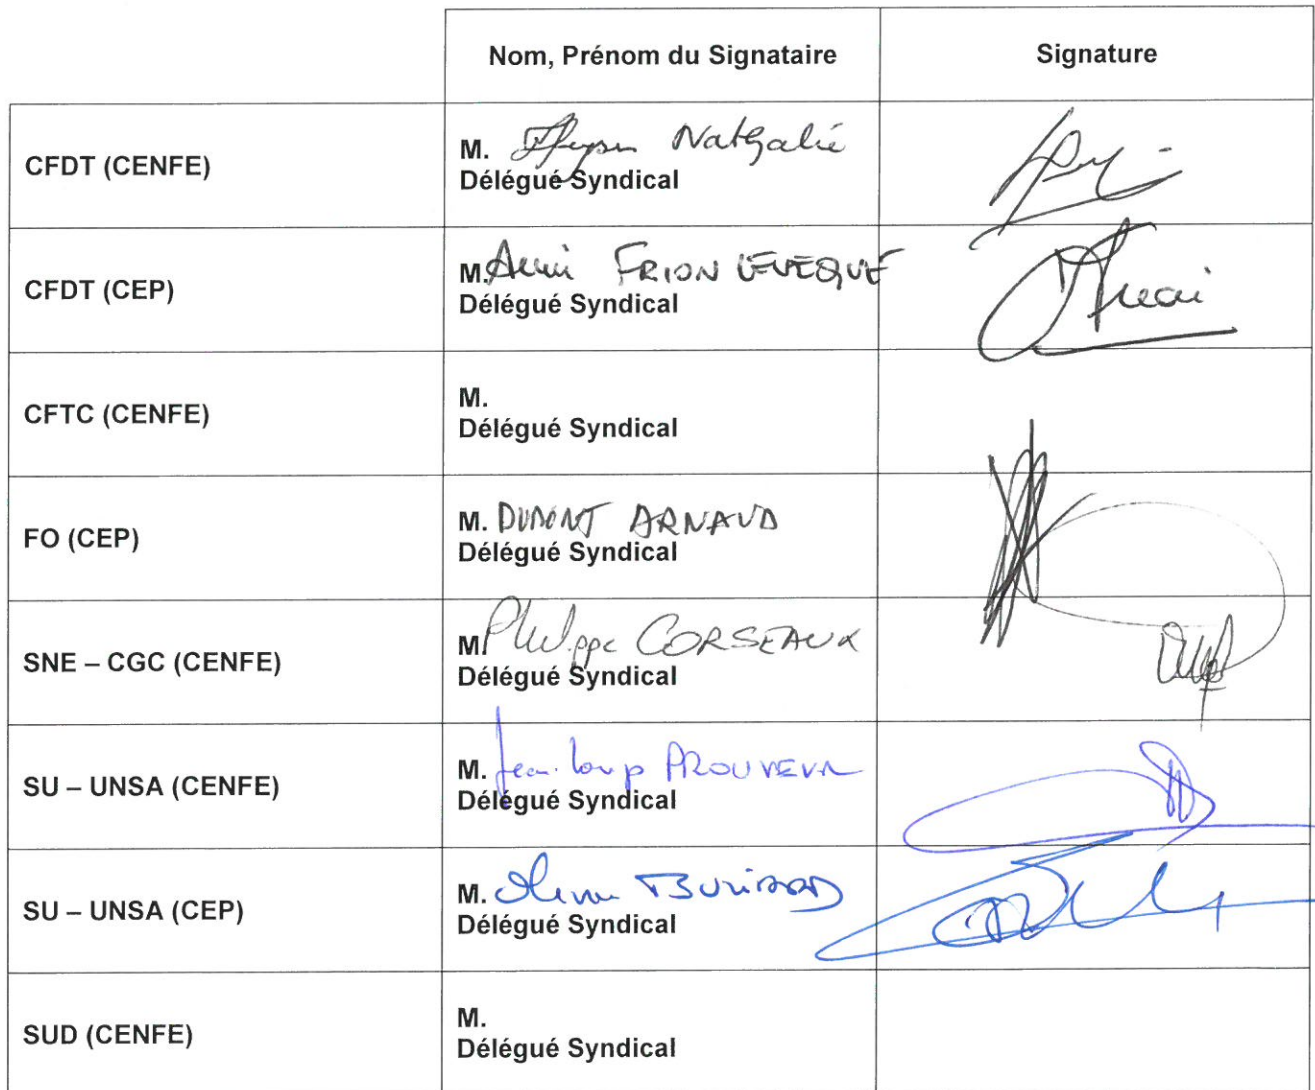 Nom, Prénom du Signataire Signature
CFDT (CENFE)
M. Nathalie
Délégué Syndical
CFDT (CEP)
M. FRION LEVEQUE
Délégué Syndical
CFTC (CENFE)
M.
Délégué Syndical
FO (CEP)
M. DUMONT ARNAUD
Délégué Syndical
SNE – CGC (CENFE)
M Philippe CORSEAUX
Délégué Syndical
SU – UNSA (CENFE)
M. Jean-Loup PROUVEUR
Délégué Syndical
SU – UNSA (CEP)
M.
Délégué Syndical
SUD (CENFE)
M.
Délégué Syndical